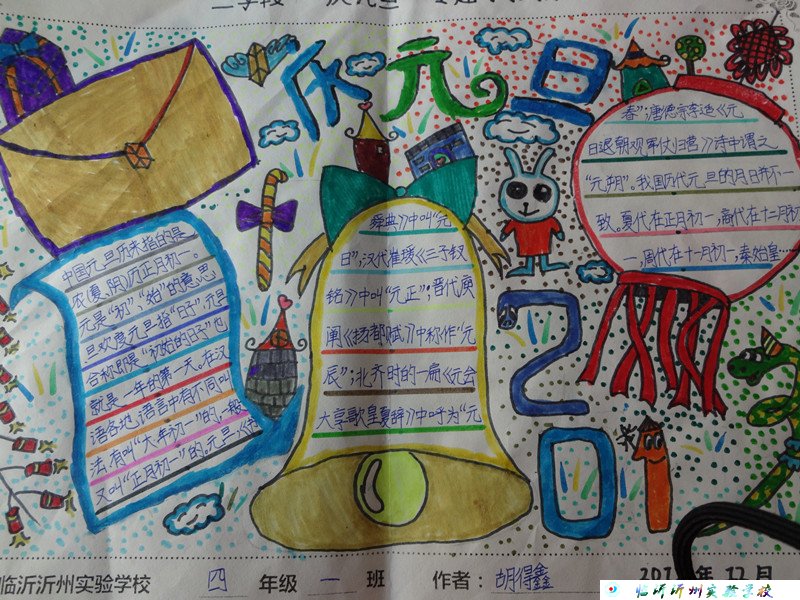 庆元旦
中国元旦历来指的是
农(夏、阴)历正月初一。
元是"初"、"始"的意思
旦欢度元旦指"日子"元旦
合称即是"初始的日子"也
就是一年的第一天。在汉
语各地,语言中有不同叫
法,有叫"大年初一"的,一般
又叫"正月初一"的。元旦,《书
舜典》中叫"元
日",汉代崔瑗《三子钗
铭》中叫"元正";晋代庾
阐《扬都赋》中称作"元
辰";北齐时的一扁《元会
大享歌皇夏辞》中呼为"元
春";唐德宗李适《元
日退朝观军仗归营》诗中谓之
"元朔"。我国历代元旦的月日并不一
致。夏代在正月初一,商代在十二月初
一,周代在十一月初一,秦始皇……
20
临沂沂州实验学校 四 年级 一 班 作者: 胡得鑫 年 12 月
临沂沂州实验学校